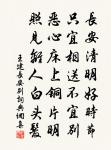 長安清明好時節
只宜相送不宜別
惡心床上銅片明
照見離人白頭髮
王建長安別詞典網書